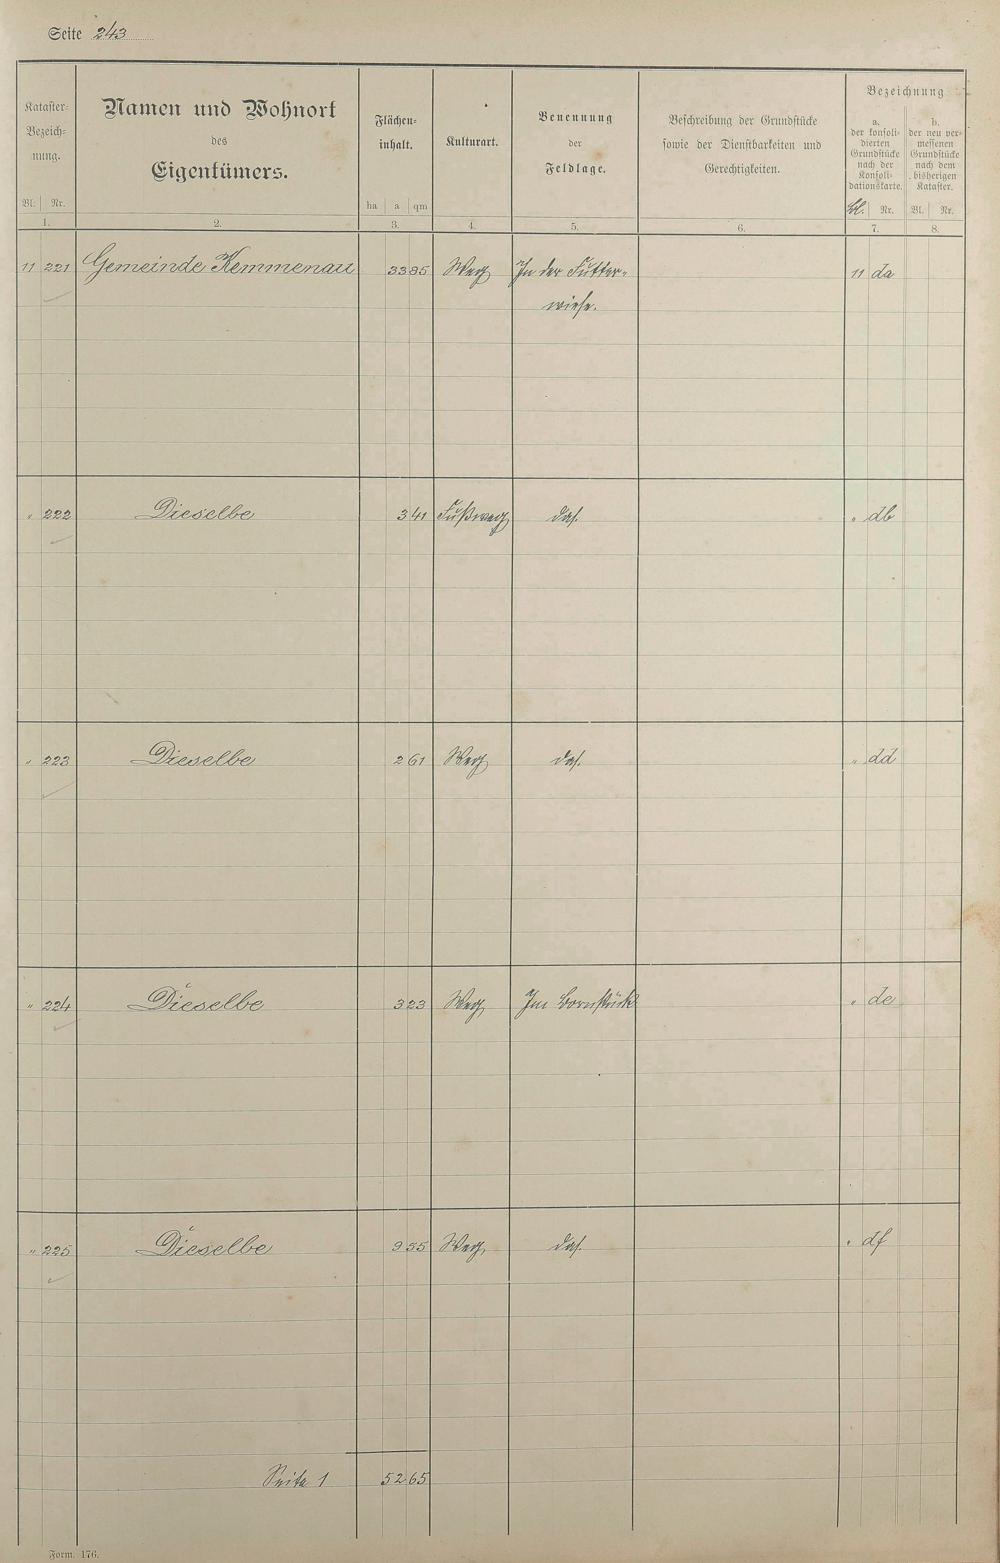 Seite 243
Kataster-
Bezeich-
nung.
Bl. Nr.
1.
Namen und Wohnort
des
Eigentümers.
2.
Flächen-
inhalt.
ha a qm
3.
Kulturart.
4.
Benennung
der
Feldlage.
5.
Beschreibung der Grundstücke
sowie der Dienstbarkeiten und
Gerechtigkeiten.
6.
Bezeichnung
a.
der konsoli-
dierten
Grundstücke
nach der
Konsoli-
dationskarte.
Bl. Nr.
7.
b.
der neu ver-
messenen
Grundstücke
nach dem
bisherigen
Kataster.
Bl. Nr.
8.
11 221 Gemeinde Kemmenau 33 85 Weg In der Futter- 11 da
wiese.
" 222 Dieselbe 3 41 Fußweg das. " db
" 223 Dieselbe 2 61 Weg das. " dd
" 224 Dieselbe 3 23 Weg Im Bornstück " de
" 225 Dieselbe 9 55 Weg das. " df
Seite 1 52 65
Form. 176.